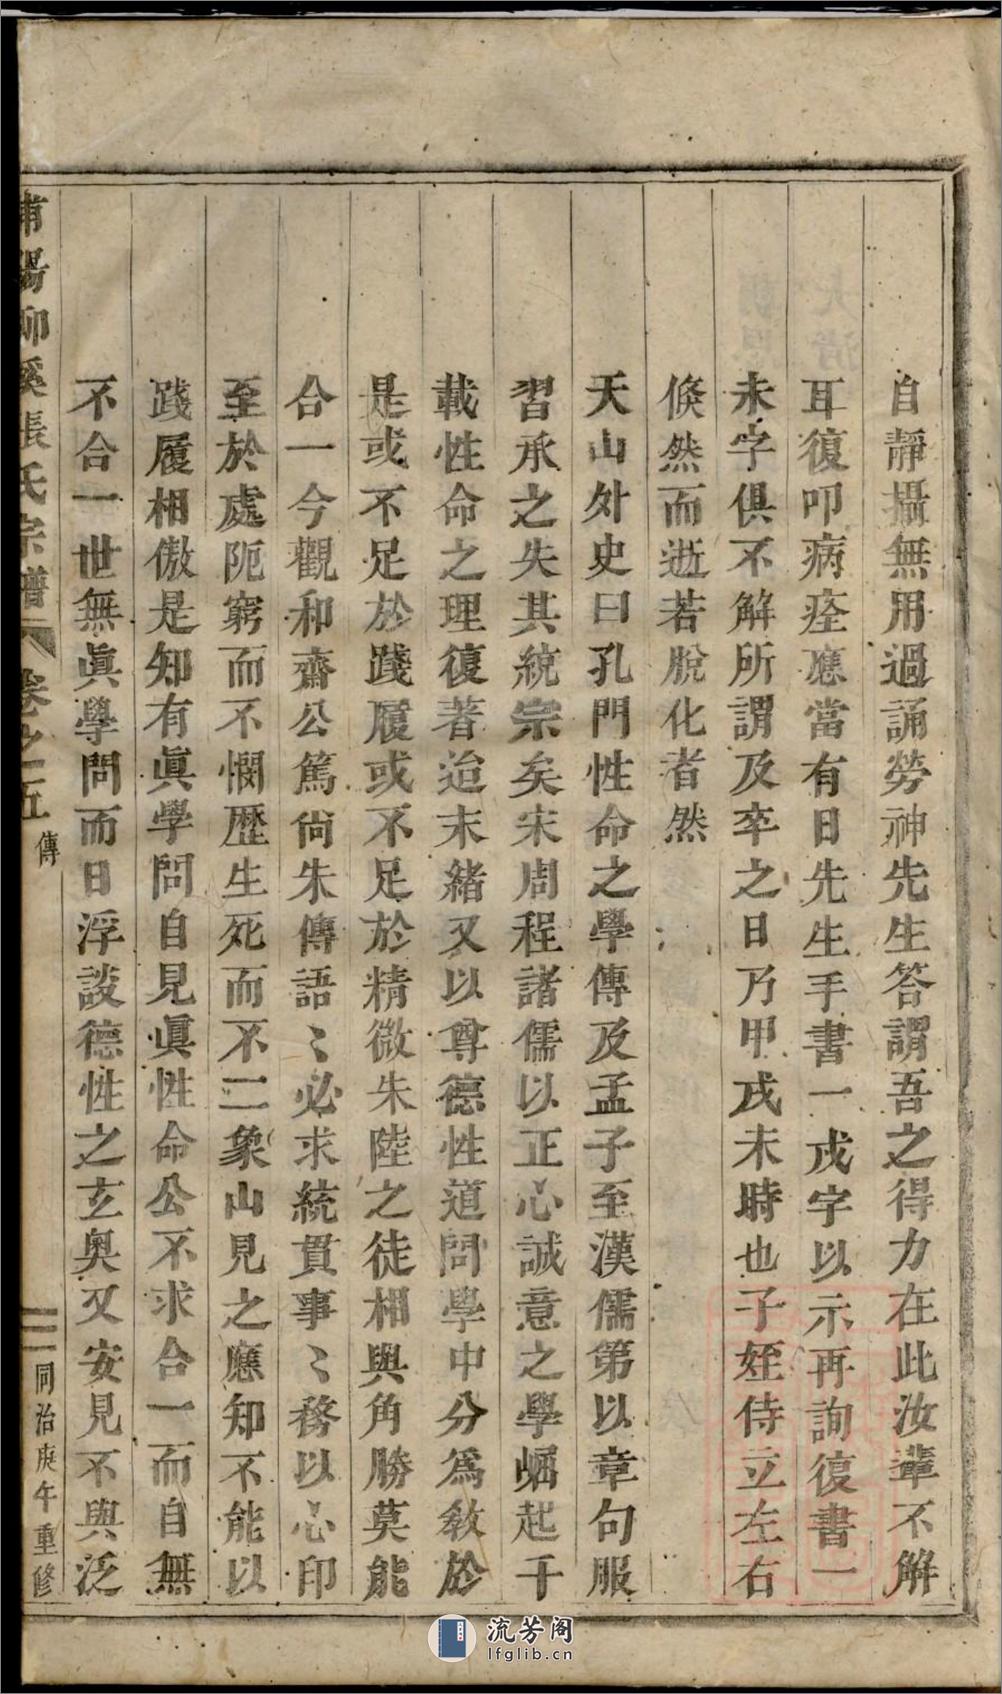 自靜攝無用過誦勞神先生答謂吾之得力在此汝輩不解
耳復叩病痊應當有日先生手書一戌字以示再詢復書一
未字俱不解所謂及卒之日乃甲戌未時也子姪侍立左右
倏然而逝若脫化者然
天山外史曰孔門性命之學傳及孟子至漢儒第以章句服
習承之失其統宗矣宋周程諸儒以正心誠意之學崛起千
載性命之理復著迨末緒又以尊德性道問學中分為敎於
是或不足於踐履或不足於精微朱陸之徒相與角勝莫能
合一今觀和齋公篤尚朱傳語〻必求統貫事〻務以心印
至於處阨窮而不憫歷生死而不二象山見之應知不能以
踐履相傲是知有眞學問自見眞性命公不求合一而自無
不合一世無眞學問而日浮談德性之玄奥又安見不與泛
浦陽柳溪張氏宗譜 卷之五 傳 同治庚午重修
流芳阁
lfglib.cn